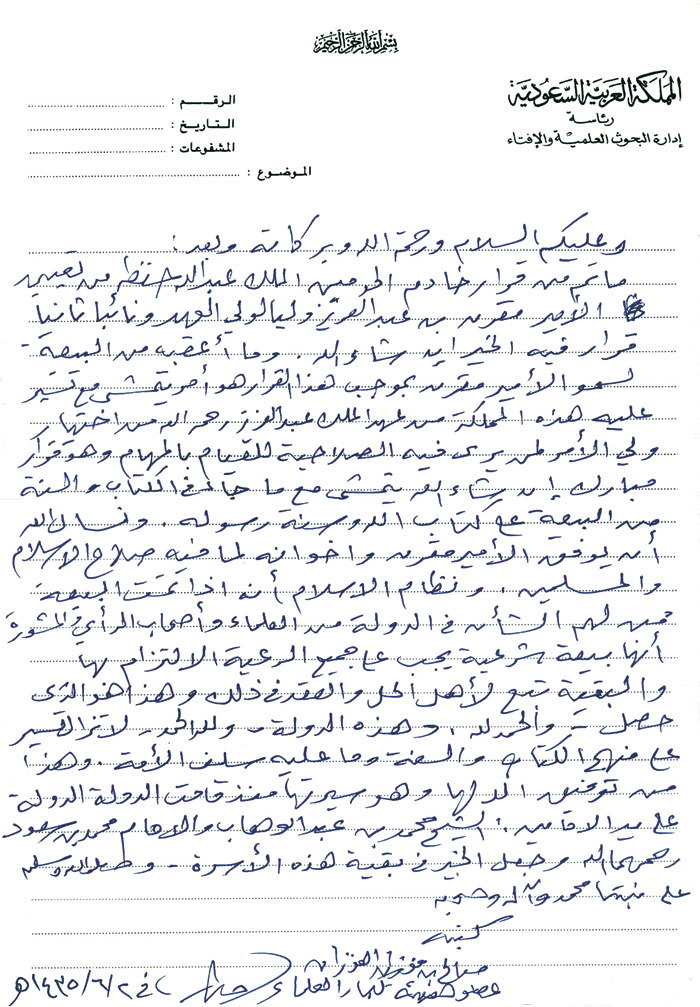 بسم الله الرحمن الرحيم
المملكة العربية السعودية
رئاسة
إدارة البحوث العلمية والإفتاء
الرقم :
التاريخ :
المشفوعات :
الموضوع :
وعليكم السلام ورحمة الله وبركاته وبعد :
ما تم من قرار خادم الحرمين الملك عبدالله حفظه من تعيين
الأمير مقرن بن عبدالعزيز وليا لولي العهد ونائبا ثانيا
قرار فيه الخير إن شاء الله . وما أعقبه من البيعة
لسمو الأمير مقرن بموجب هذا القرار هو أمر يتمشى مع تسير
عليه هذه المملكة من عهد الملك عبدالعزيز رحمه الله من اختيار
ولي الأمر لمن يرى فيه الصلاحية للقيام بالمهام وهو قرار
مبارك إن شاء الله يتمشى مع ما جاء في الكتاب والسنة
من البيعة على كتاب الله وسنة رسوله . ونسأل الله
أن يوفق الأمير مقرن واخوانه لما فيه صلاح الاسلام
والمسلمين . ونظام الاسلام أنه اذا تمت البيعة
ممن لهم الشأن في الدولة من العلماء وأصحاب الرأي في المشورة
أنها بيعة شرعية يجب على جميع الرعية الالتزام بها
والبقية تبع لأهل الحل والعقد في ذلك وهذا هو الذي
حصل - والحمد لله . وهذه الدولة - ولله الحمد - لا تزال تسير
على منهج الكتاب والسنة وما عليه سلف الأمة . وهذا
من توفيق الله لها وهو سيرتها منذ قامت الدولة
على يد الامامين : الشيخ محمد بن عبدالوهاب والامام محمد بن سعود
رحمهما الله وجعل الخير في بقية هذه الأسرة - وصلى الله وسلم
على نبينا محمد وآله وصحبه
كتبه
صالح بن فوزان الفوزان
عضو هيئة كبار العلماء
في ٢/٦/١٤٣٥هـ